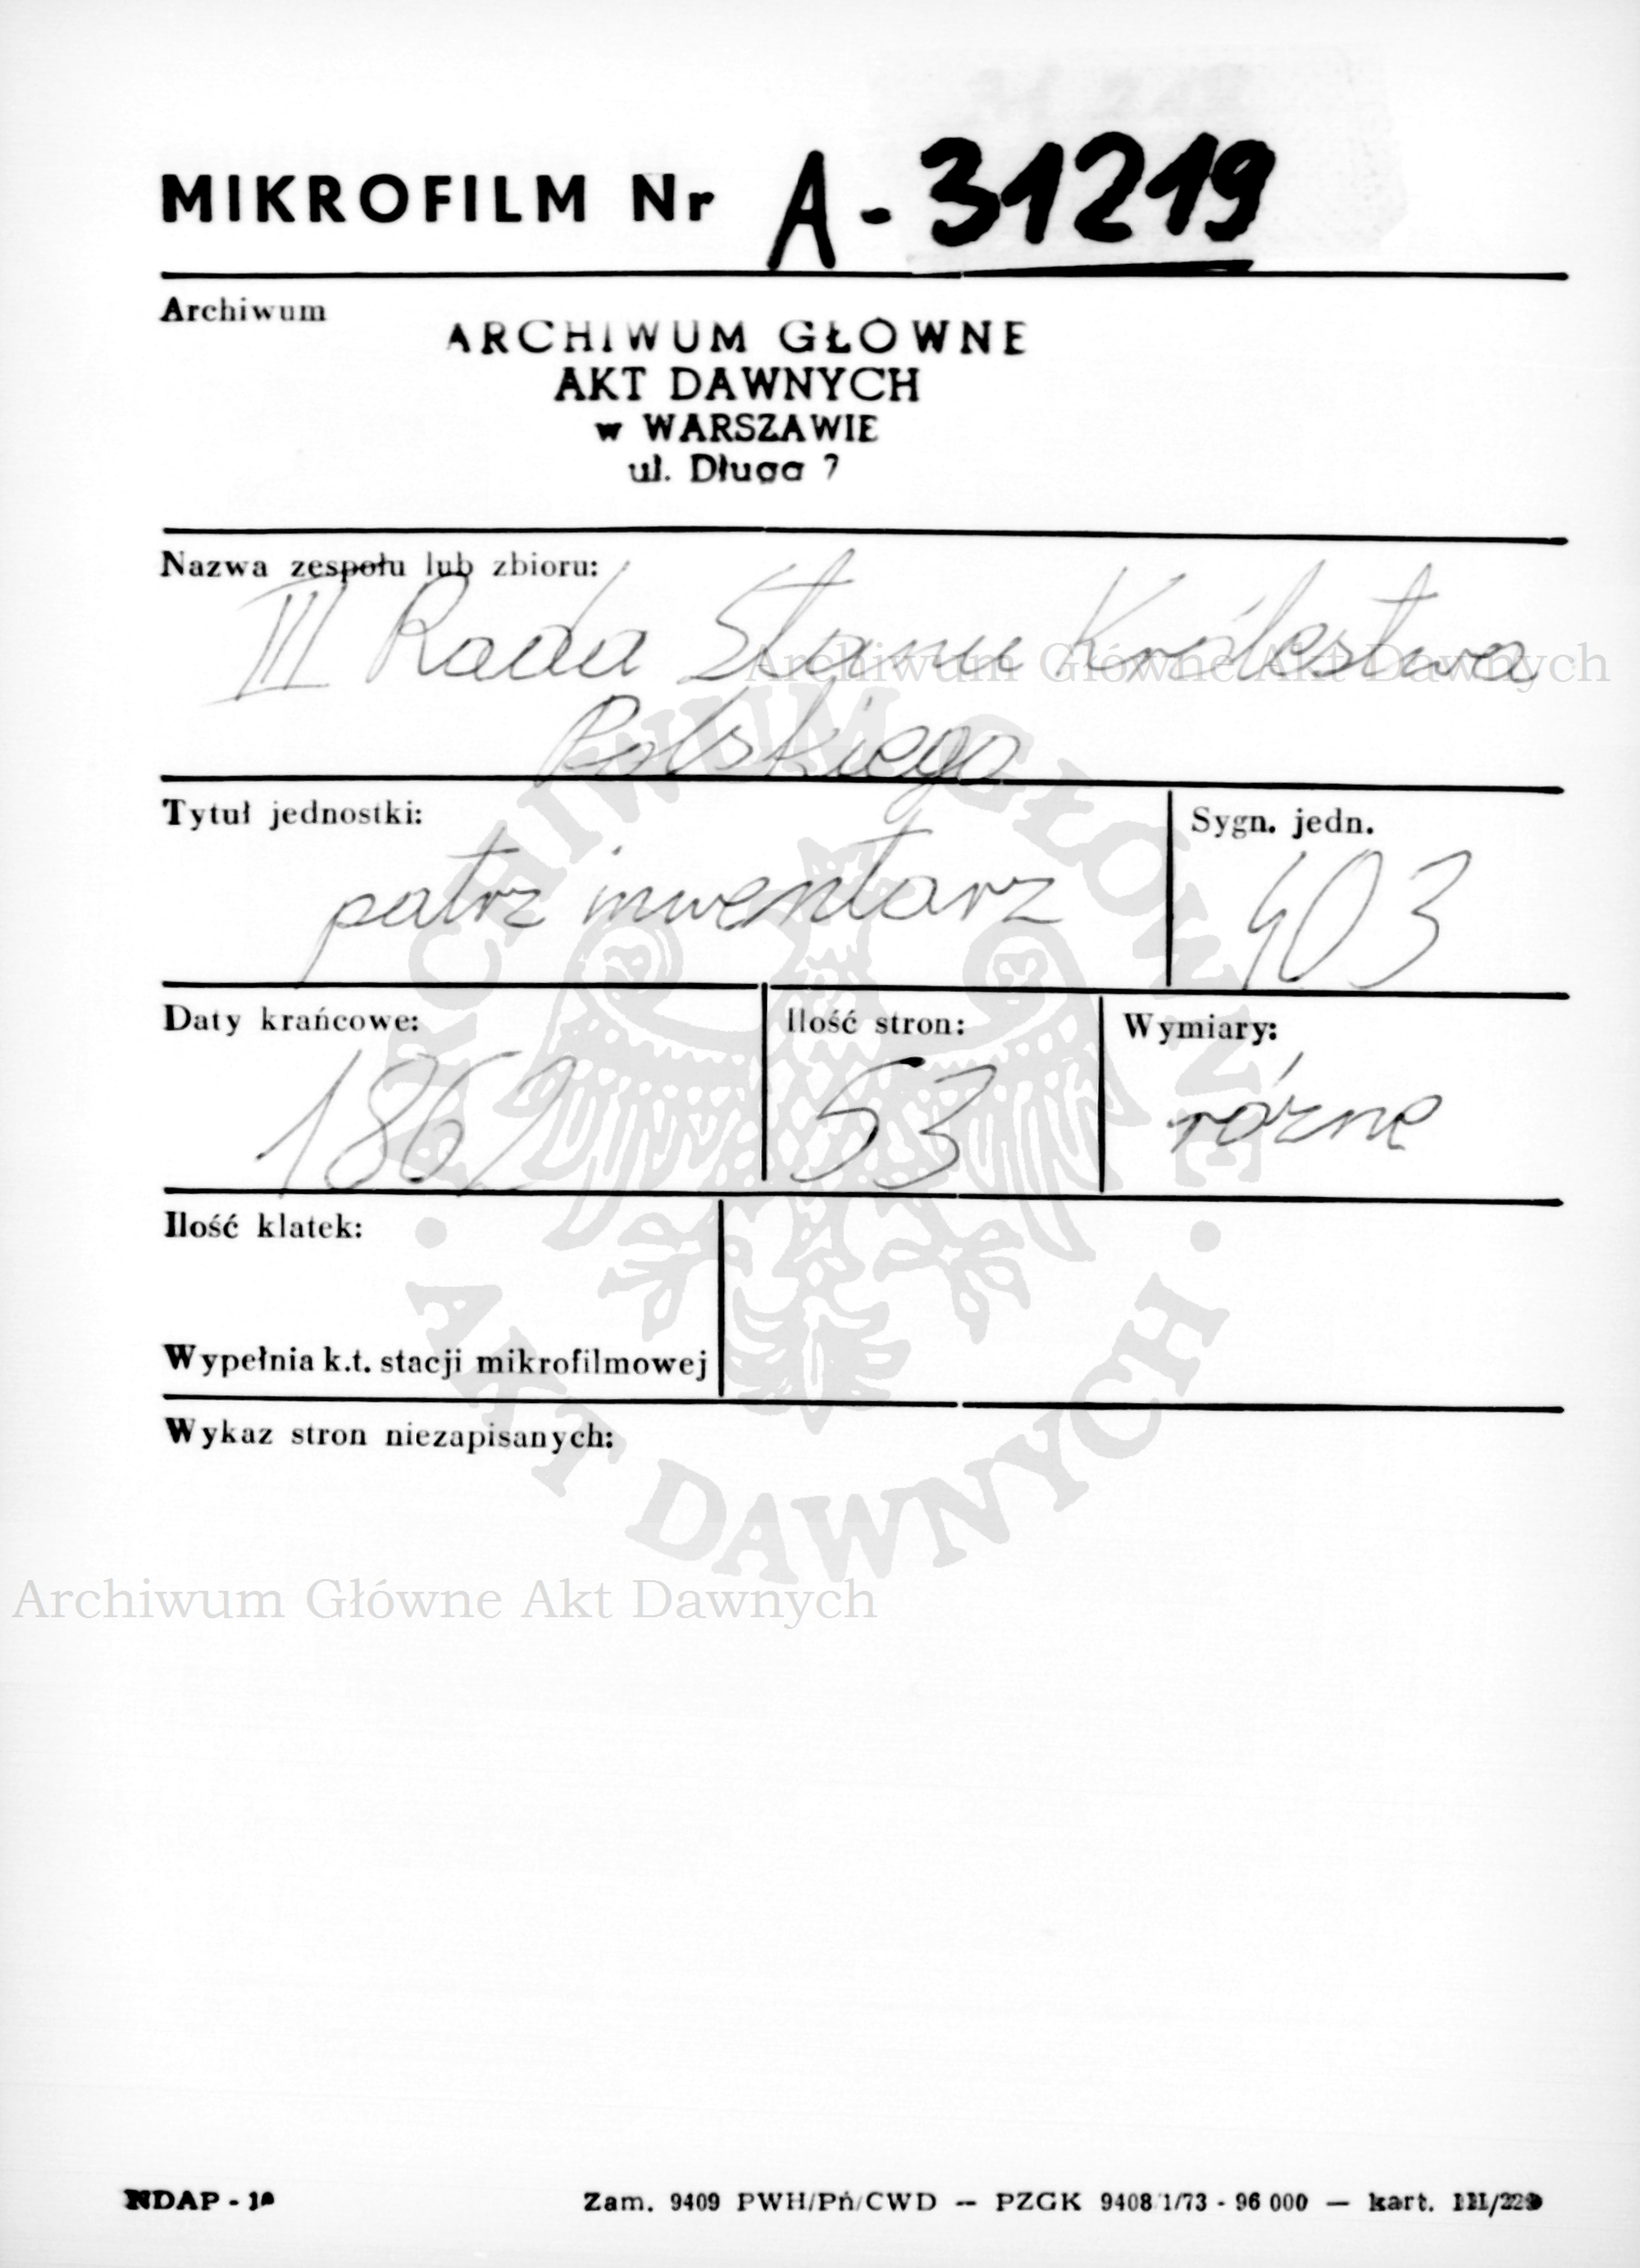 MIKROFILM Nr A - 31219
Archiwum
ARCHIWUM GŁÓWNE
AKT DAWNYCH
w WARSZAWIE
ul. Długa 7
Nazwa zespołu lub zbioru:
III Rada Stanu Królestwa
Archiwum Główne Akt Dawnych
Polskiego
Tytuł jednostki:
Sygn. jedn.
patrz inwentarz
403
Daty krańcowe:
Ilość stron:
Wymiary:
1862
53
różne
Ilość klatek:
Wypełnia k.t. stacji mikrofilmowej
Wykaz stron niezapisanych:
ARCHIWUM GŁÓWNE
· AKT DAWNYCH ·
Archiwum Główne Akt Dawnych
NDAP -
Zam. 9409 PWH/Pń/CWD — PZGK 9408/1/73 - 96 000 — kart.